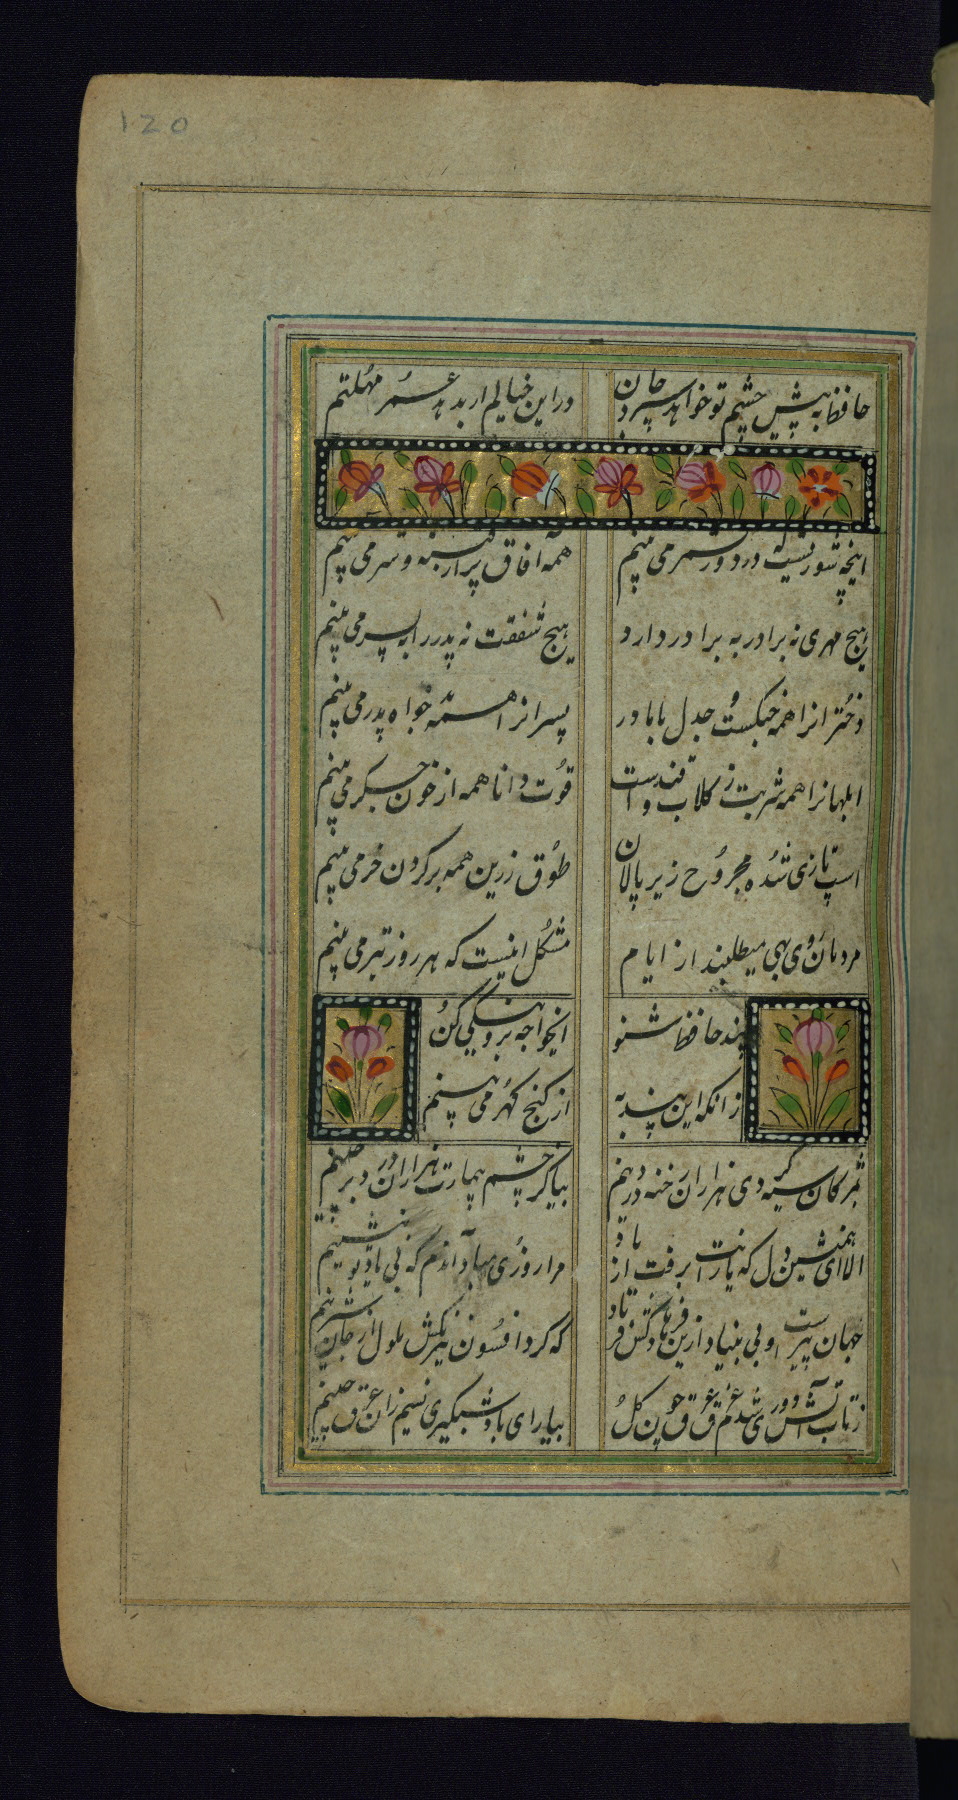 120
حافظ به پیش چشم تو خواهد سپرد جان
در این خیالم ار بدهد عمر مهلتم
اینچه شوریست که در دور قمر می بینم
همه آفاق پر از فتنه و شر می بینم
هیچ مهری نه برادر به برادر دارد
هیچ شفقت نه پدر را به پسر می بینم
دختران را همه جنگست و جدل با مادر
پسران را همه بدخواه پدر می بینم
ابلهان را همه شربت ز گلاب و قندست
قوت دانا همه از خون جگر می بینم
اسب تازی شده مجروح زیر پالان
طوق زرین همه بر گردن خر می بینم
مردمان روی بهی میطلبند از ایام
مشکل اینست که هر روز بتر می بینم
پند حافظ شنو
ایخواجه برو نیکی کن
زانکه این پند به
از گنج گهر می بینم
بمژگان سیه کردی هزاران رخنه در دینم
بیا کز چشم بیمارت هزاران درد بر چینم
الا ای همنشین دل که یارانت برفت از یاد
مرا روزی مباد آندم که بی یاد تو بنشینم
جهان پیر است و بی بنیاد ازین فرهاد کش فریاد
که کرد افسون نیرنگش ملول از جان شیرینم
ز تاب آتش دوری شدم غرق عرق چون گل
بیار ای باد شبگیری نسیم زان عرق چینم